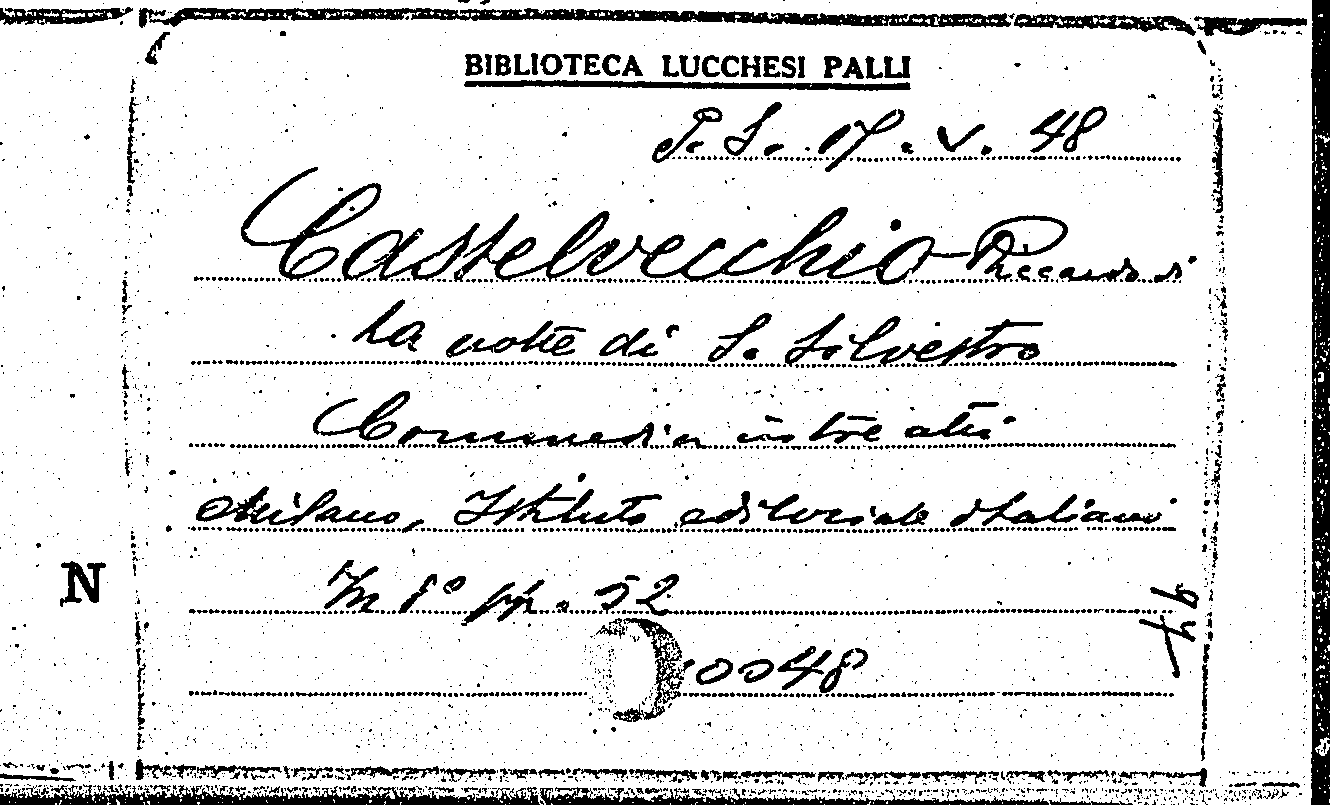 BIBLIOTECA LUCCHESI PALLI
P. S. 17. V. 48
Castelvecchio Riccardo di
La notte di S. Silvestro
Commedia in tre atti
Milano, Istituto editoriale italiano
In 8° pp. 52
N
0048